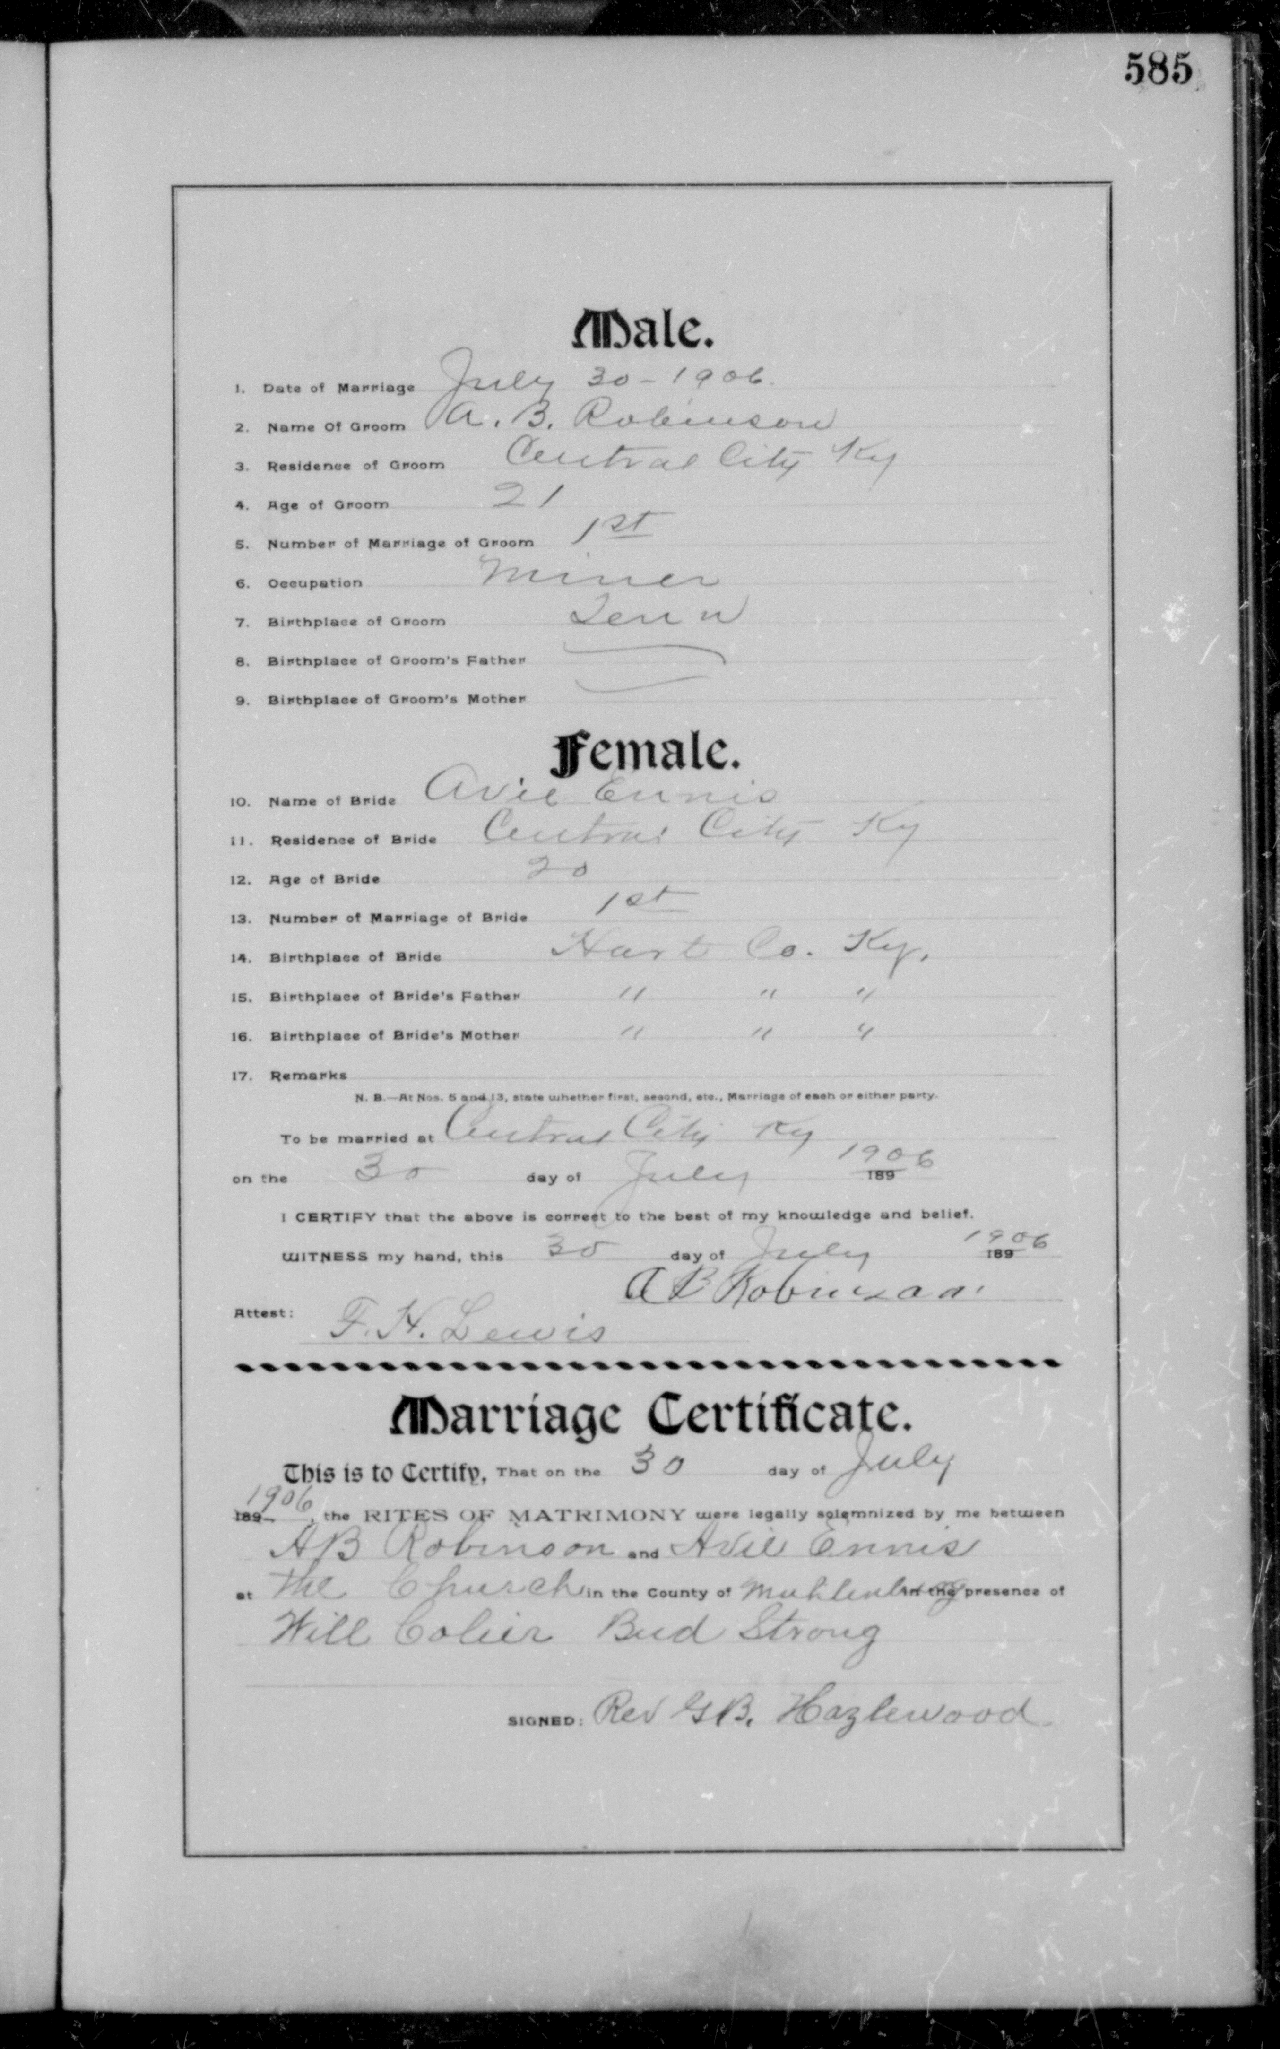 585
Male.
1. Date of Marriage July 30-1906.
2. Name Of Groom A. B. Robinson
3. Residence of Groom Central City Ky
4. Age of Groom 21
5. Number of Marriage of Groom 1st
6. Occupation Miner
7. Birthplace of Groom Tenn
8. Birthplace of Groom's Father
9. Birthplace of Groom's Mother
Female.
10. Name of Bride Avie Ennis
11. Residence of Bride Central City Ky
12. Age of Bride 20
13. Number of Marriage of Bride 1st
14. Birthplace of Bride Hart Co. Ky.
15. Birthplace of Bride's Father " " "
16. Birthplace of Bride's Mother " " "
17. Remarks
N. B.—At Nos. 5 and 13, state whether first, second, etc., Marriage of each or either party.
To be married at Central City Ky
on the 30 day of July 189 1906
I CERTIFY that the above is correct to the best of my knowledge and belief.
WITNESS my hand, this 30 day of July 189 1906
A B Robinson
Attest: F. H. Lewis
Marriage Certificate.
This is to Certify, That on the 30 day of July
189 1906, the RITES OF MATRIMONY were legally solemnized by me between
A B Robinson and Avie Ennis
at the Church in the County of Muhlenberg in the presence of
Will Colier Bud Strong
SIGNED: Rev G B. Hazlewood